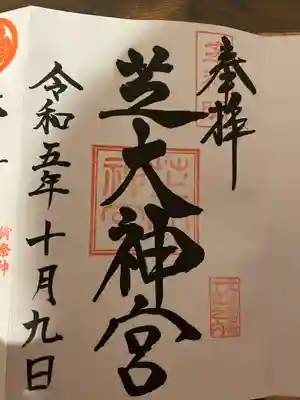 奉拝
芝大神宮
令和五年十月九日
御祭神